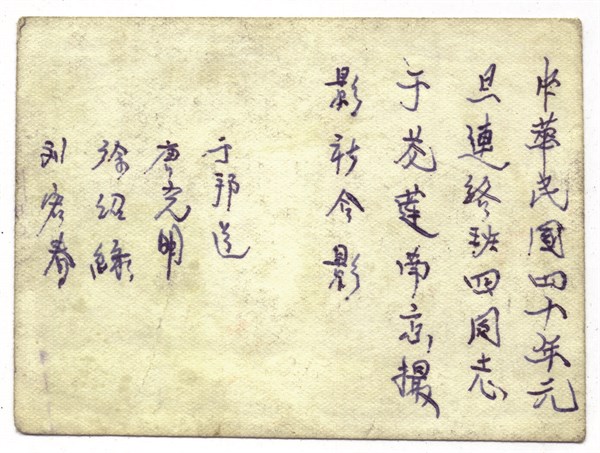 中華民國四十年元
旦連終班四同志
于花蓮南京撮
影社合影
于邦道
唐光明
徐紹緣
刘宏春